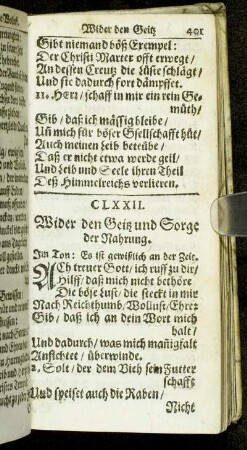 Wider den Geitz 401
Gibt niemand böß Exempel:
Der Christi Marter offt erwegt/
An dessen Creutz die Lüste schlägt/
Und sie dadurch fort dämpffet.
11. HErr/schaff in mir ein rein Ge-
müth/
Gib/ daß ich mässig bleibe/
Uñ mich für böser Gsellschafft hüt/
Auch meinen Leib betrübe/
Daß er nicht etwa werde geil/
Und Leib und Seele ihren Theil
Deß Himmelreichs verlieren.
CLXXII.
Wider den Geitz und Sorge
der Nahrung.
Im Ton: Es ist gewißlich an der Zeit.
ACh treuer Gott/ ich ruff zu dir/
Hilff/ daß mich nicht bethöre
Die böse Lust/ die steckt in mir
Nach Reichthumb, Wollust/Ehre:
Gib/ daß ich an dein Wort mich
halt/
Und dadurch/ was mich mañigfalt
Anfichtet/ überwinde.
2, Solt/ der dem Vieh sein Futter
schafft
Und speiset auch die Raben/
Nicht